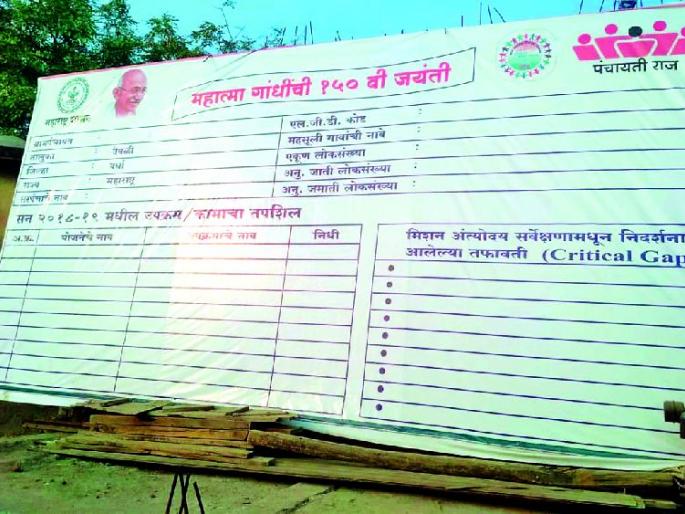 महाराष्ट्र शासन
महात्मा गांधींची १५० वी जयंती
पंचायती राज
ग्रामपंचायत :
तालुका : देवळी
जिल्हा : वर्धा
राज्य : महाराष्ट्र
सरपंचाचे नाव :
एल.जी.डी. कोड :
महसूली गावांची नावे :
एकूण लोकसंख्या :
अनु. जाती लोकसंख्या :
अनु. जमाती लोकसंख्या :
सन २०१८-१९ मधील उपक्रम/कामाचा तपशिल
अ.क्र. योजनेचे नाव उपक्रमाचे नाव निधी
मिशन अंत्योदय सर्वेक्षणामधून निदर्शना
आलेल्या तफावती (Critical Gap